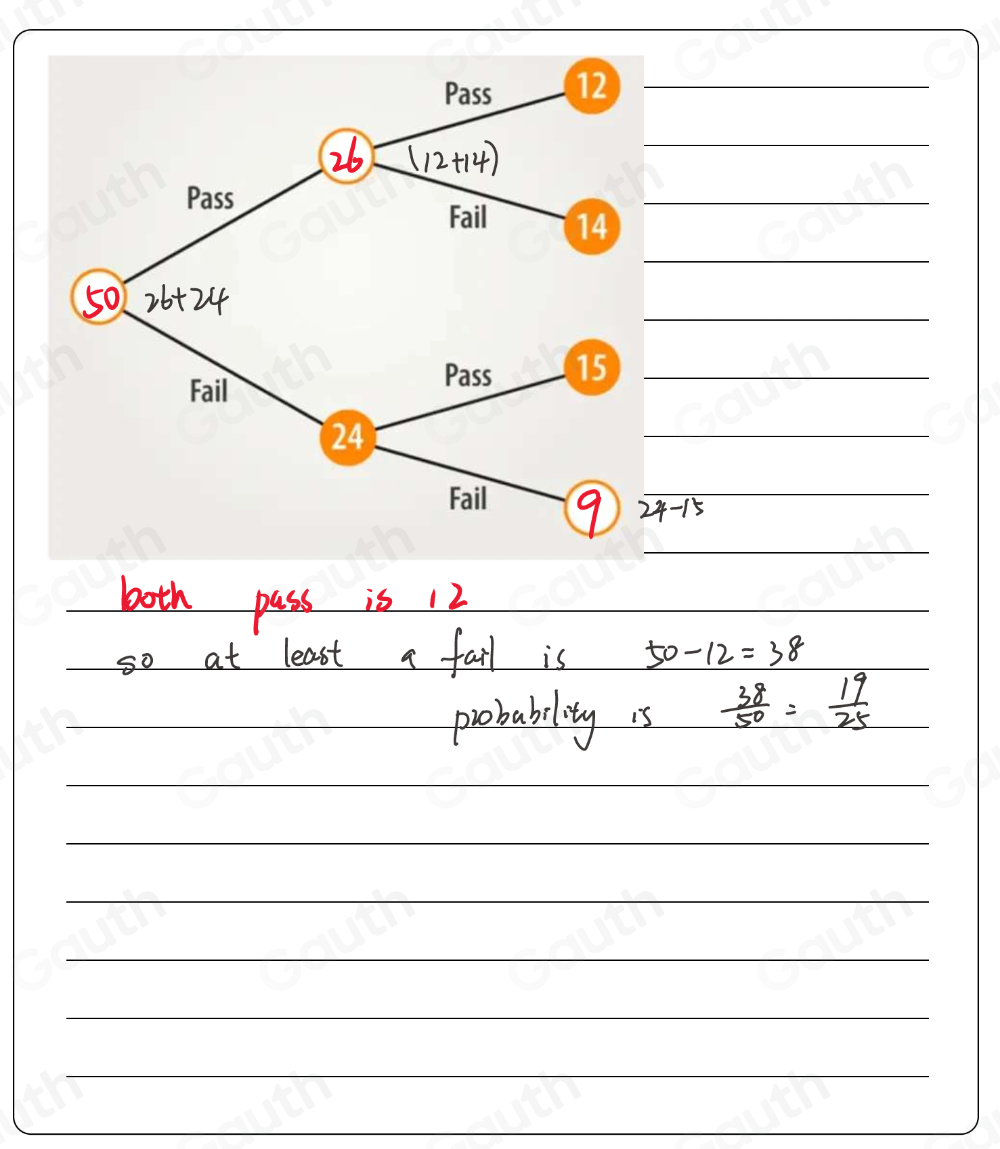 Pass 12
26 (12+14)
Pass
Fail 14
50 26+24
Pass 15
Fail
24
Fail 9 24-15
both pass is 12
so at least a fail is 50-12=38
probability is 38/50 = 19/25
Gauth